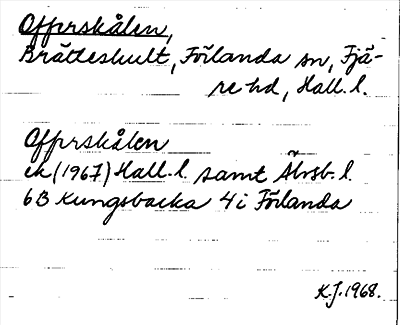 Offerskålen,
Brätteshult, Förlanda sn, Fjä-
re hd, Hall. l.
Offerskålen
ek (1967) Hall. l. samt Älvsb. l.
6B Kungsbacka 4 i Förlanda
K.J. 1968.